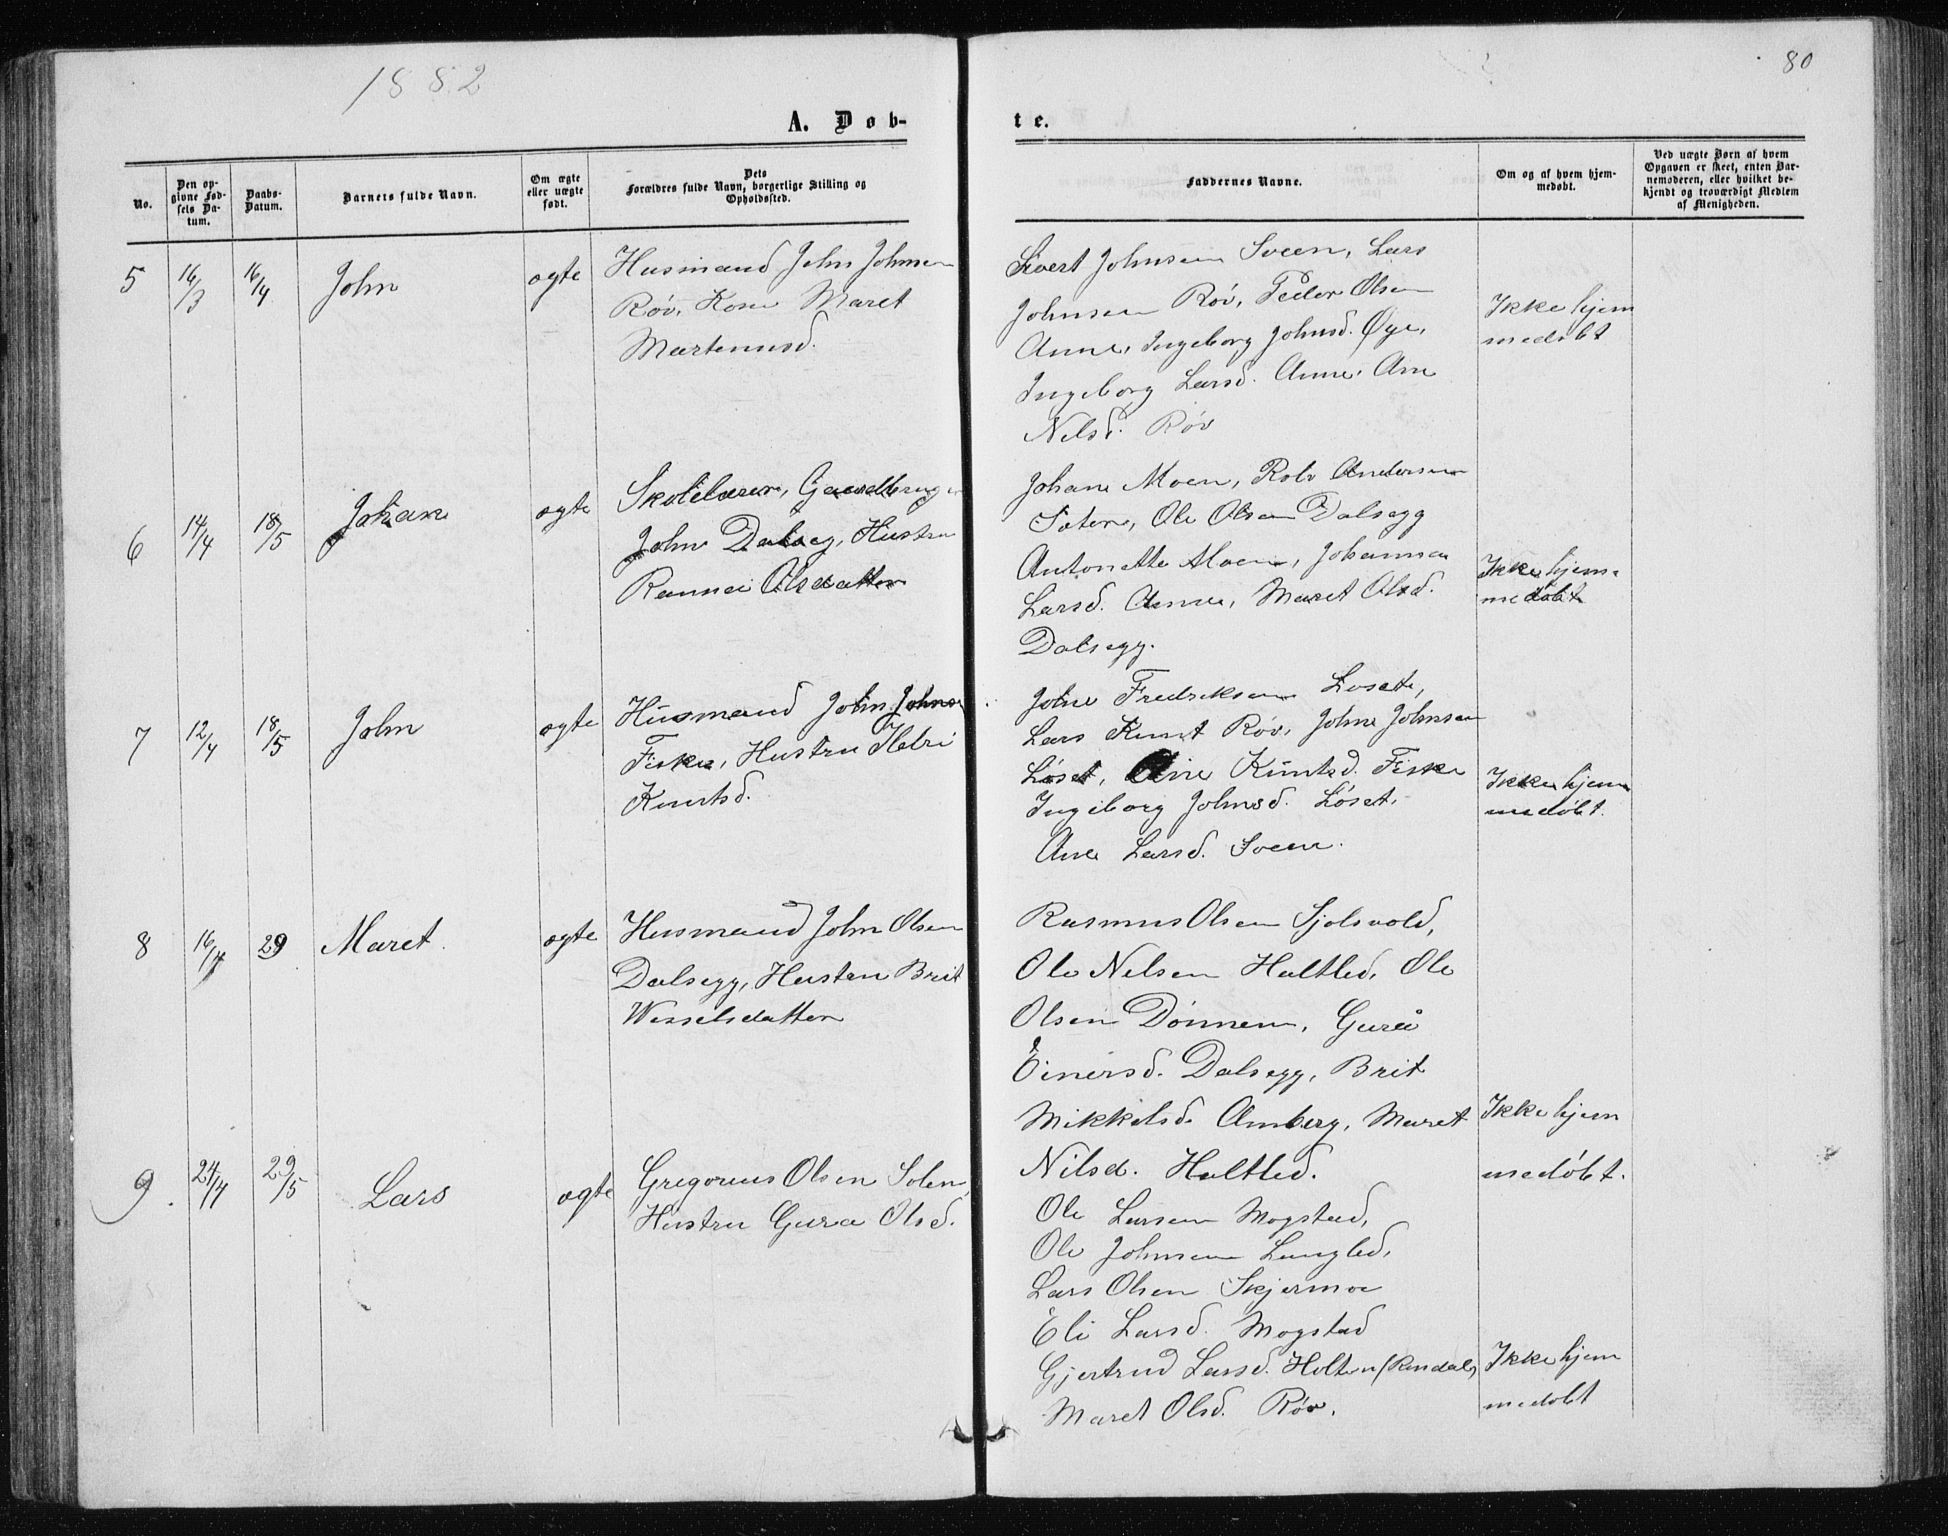 1882
80
A. Døb-
te.
No.
Den op-
givne Fød-
sels Da-
tum.
Daabs-
Datum.
Barnets fulde Navn.
Om ægte
eller uægte
født.
Dets
Forældres fulde Navn, borgerlige Stilling og
Opholdssted.
Faddernes Navne.
Om og af hvem hjem-
medøbt.
Ved uægte Børn af hvem
Opgaven er skeet, enten Bar-
nemoderen, eller hvilket be-
kjendt og troværdigt Medlem
af Menigheden.
5
16/3
16/4
John
ægte
Husmand John Johnsen
Røv, Kone Maret
Martinusd.
Sivert Johnsen Sveen, Lars
Johnsen Røv, Peder Olsen
Anne, Ingeborg Johnsd. Øye,
Ingeborg Larsd. Anne, Ane
Nelsd. Røv
Ikke hjem
medøbt
6
14/4
18/5
Johan
ægte
Skolelærer, Gaardbruger
John Dalseg, Hustru
Rannei Olsdatter
Johan Moen, Rolv Andersen
Sæter, Ole Olsen Dalsegg
Antonette Moen, Johanna
Larsd. Anne, Maret Olsd.
Dalsegg.
Ikke hjem-
medøbt
7
12/4
18/5
John
ægte
Husmand John Johnsen
Fiske, Hustru
Knutsd.
John Fredriksen Løset,
Lars Knut Røv, John Johnsen
Løset, Ane Knutsd. Fiske
Ingeborg Johnsd. Løset,
Ane Larsd. Sveen.
Ikke hjem
medøbt.
8
16/4
29
Maret.
ægte
Husmand John Olsen
Dalsegg, Hustru Brit
Wesselsdatter
Rasmus Olsen Sjølsvold,
Ole Nelsen Holtled, Ole
Olsen Dønnem, Gurå
Einersd. Dalsegg, Brit
Mikkelsd. Omberg, Maret
Nilsd. Holtled.
Ikke hjem
medøbt.
9.
24/4
29/5
Lars
ægte
Gregorius Olsen Solem,
Hustru Gura Olsd.
Ole Larsen Mogstad,
Ole Johnsen Langled,
Lars Olsen Skjermoe
Eli Larsd. Mogstad
Gjertrud Larsd. Holten (Rindal)
Maret Olsd. Røv.
Ikke hjem
medøbt